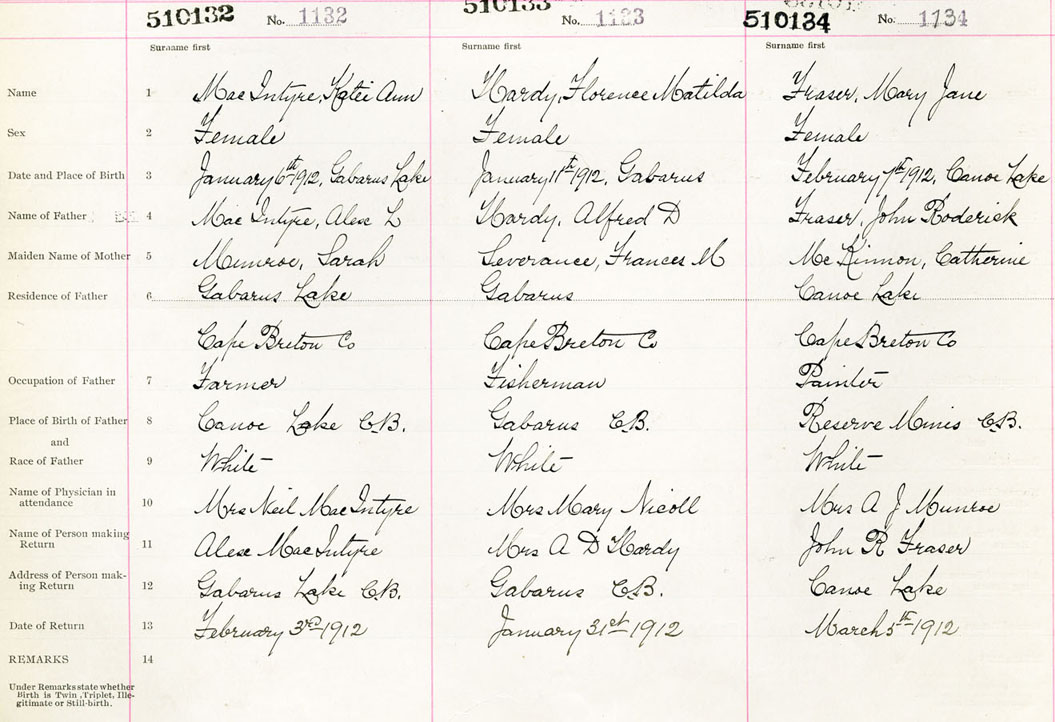 510132 No. 1132 510133 No. 1133 510134 No. 1134
Surname first Surname first Surname first
Name 1 MacIntyre, Katei Ann Hardy, Florence Matilda Fraser, Mary Jane
Sex 2 Female Female Female
Date and Place of Birth 3 January 6th 1912, Gabarus Lake January 11th 1912, Gabarus February 7th 1912, Canoe Lake
Name of Father 4 MacIntyre, Alex L Hardy, Alfred D Fraser, John Roderick
Maiden Name of Mother 5 Munroe, Sarah Severance, Frances M McKinnon, Catherine
Residence of Father 6 Gabarus Lake Gabarus Canoe Lake
Cape Breton Co Cape Breton Co Cape Breton Co
Occupation of Father 7 Farmer Fisherman Painter
Place of Birth of Father 8 Canoe Lake C.B. Gabarus C.B. Reserve Mines C.B.
and
Race of Father 9 White White White
Name of Physician in
attendance 10 Mrs Neil MacIntyre Mrs Mary Nicoll Mrs A J Munroe
Name of Person making
Return 11 Alex MacIntyre Mrs A D Hardy John R Fraser
Address of Person mak-
ing Return 12 Gabarus Lake C.B. Gabarus C.B. Canoe Lake
Date of Return 13 February 3rd 1912 January 31st 1912 March 5th 1912
REMARKS 14
Under Remarks state whether
Birth is Twin, Triplet, Ille-
gitimate or Still-birth.